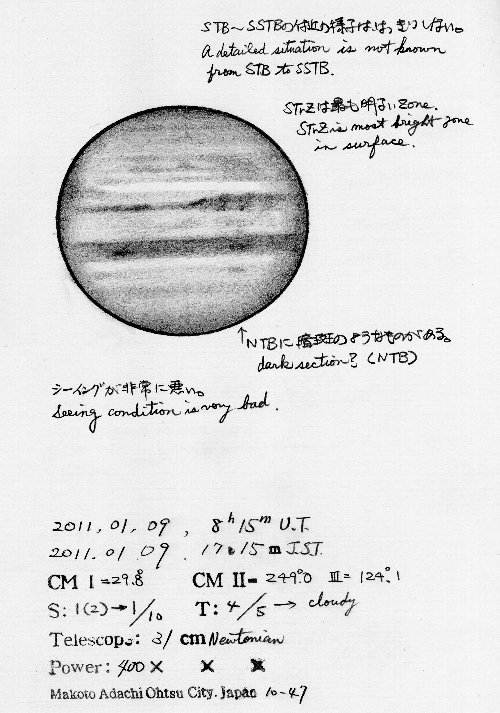 STB～SSTBの付近の様子ははっきりしない。
A detailed situation is not known
from STB to SSTB.
STrZは最も明るいZone.
STrZ is most bright zone
in surface.
↑NTBに暗斑のようなものがある。
dark section? (NTB)
シーイングが非常に悪い。
Seeing condition is very bad.
2011, 01, 09 , 8h 15m U.T.
2011. 01 09 . 17h 15 m J.S.T.
CM I = 29.8 CM II= 249.°0 III = 124.°1
S: 1(2) → 1/10 T: 4/5 → cloudy
Telescope: 31 cm Newtonian
Power: 400 × × ×
Makoto Adachi Ohtsu City. Japan 10-47